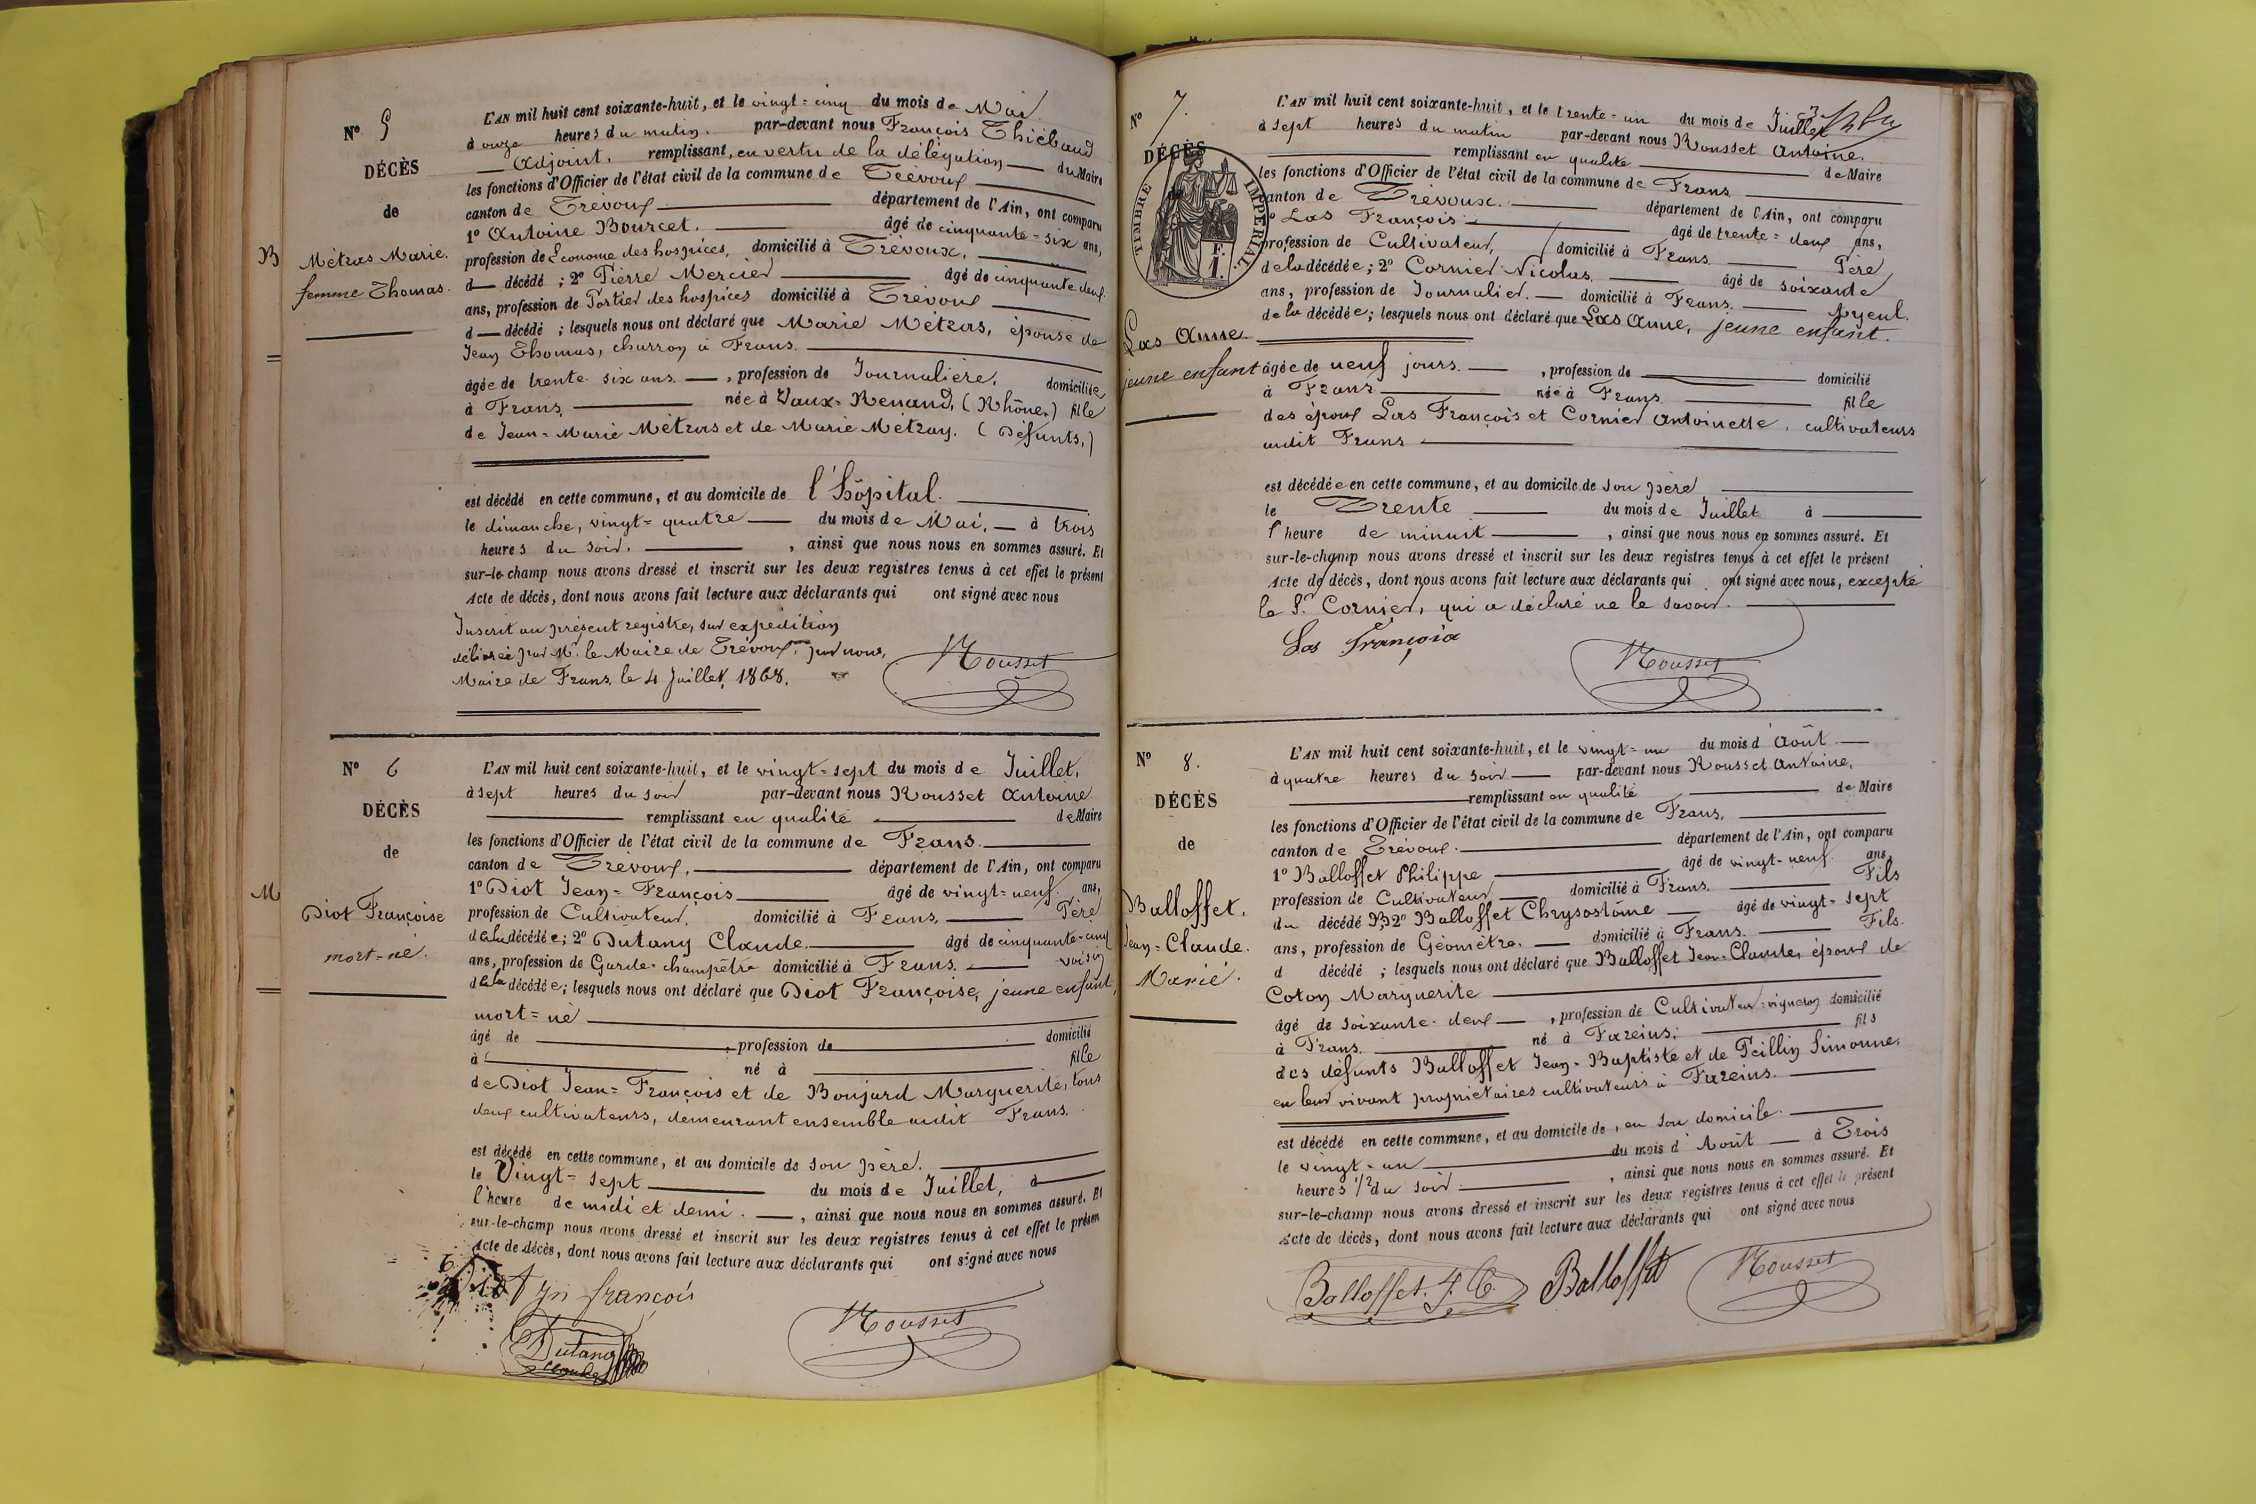 N° 5
DÉCÈS
de
Métras Marie.
femme Thomas.
B
L'AN mil huit cent soixante-huit, et le vingt=cinq du mois de Mai
à onze heures du matin. par-devant nous François Thiébaud
Adjoint. remplissant, en vertu de la délégation du Maire
les fonctions d'Officier de l'état civil de la commune de Trévoux
canton de Trévoux département de l'Ain, ont comparu
1° Antoine Bourcet. âgé de cinquante=six ans,
profession de Économe des hospices, domicilié à Trévoux,
d décédé ; 2° Pierre Mercier âgé de cinquante deux
ans, profession de Portier des hospices domicilié à Trévoux
d décédé ; lesquels nous ont déclaré que Marie Métras, épouse de
Jean Thomas, charron à Frans.
âgée de trente six ans , profession de Journalière, domiciliée
à Frans, née à Vaux=Renard, (Rhône) fille
de Jean=Marie Métras et de Marie Métray. (Défunts,)
est décédé en cette commune, et au domicile de l'hôpital.
le dimanche, vingt=quatre du mois de Mai, à trois
heures du soir. , ainsi que nous nous en sommes assuré. Et
sur-le-champ nous avons dressé et inscrit sur les deux registres tenus à cet effet le présent
Acte de décès, dont nous avons fait lecture aux déclarants qui ont signé avec nous
Inscrit au présent registre, sur expédition
délivrée par Mr. le Maire de Trévoux, par nous,
Maire de Frans, le 4 Juillet, 1868.
Rousset
N° 6
DÉCÈS
de
M
Diot Françoise
mort=né.
L'AN mil huit cent soixante-huit, et le vingt=sept du mois de Juillet,
à sept heures du soir par-devant nous Rousset Antoine
remplissant en qualité de Maire
les fonctions d'Officier de l'état civil de la commune de Frans.
canton de Trévoux, département de l'Ain, ont comparu
1° Diot Jean=François âgé de vingt=neuf ans,
profession de Cultivateur. domicilié à Frans, Père
de la décédée; 2° Dutang Claude. âgé de cinquante=cinq
ans, profession de Garde=champêtre domicilié à Frans. voisin
de la décédée; lesquels nous ont déclaré que Diot Françoise, jeune enfant,
mort=né
âgé de , profession de domicilié
à né à fille
de Diot Jean=François et de Bonjard Marguerite, tous
deux cultivateurs, demeurant ensemble audit Frans.
est décédé en cette commune, et au domicile de son père.
le Vingt=sept du mois de Juillet, à
l'heure de midi et demi. , ainsi que nous nous en sommes assuré. Et
sur-le-champ nous avons dressé et inscrit sur les deux registres tenus à cet effet le présen
Acte de décès, dont nous avons fait lecture aux déclarants qui ont signé avec nous
Diot Jn françois
Dutang
Claude
Rousset
N° 7.
DÉCÈS
TIMBRE IMPÉRIAL.
F.
1.
Las Anne.
jeune enfant
L'AN mil huit cent soixante-huit, et le trente=un du mois de Juillet
à sept heures du matin par-devant nous Rousset Antoine.
remplissant en qualité de Maire
les fonctions d'Officier de l'état civil de la commune de Frans
canton de Trévoux. département de l'Ain, ont comparu
1° Las François âgé de trente=deux ans,
profession de Cultivateur, domicilié à Frans Père
de la décédée; 2° Cornier Nicolas. âgé de soixante
ans, profession de Journalier. domicilié à Frans. Ayeul.
de la décédée; lesquels nous ont déclaré que Las Anne, jeune enfant.
âgée de neuf jours. , profession de domicilié
à Frans née à Frans. fille
des époux Las François et Cornier Antoinette, cultivateurs
audit Frans
est décédée en cette commune, et au domicile de son père
le Trente du mois de Juillet à
l'heure de minuit , ainsi que nous nous en sommes assuré. Et
sur-le-champ nous avons dressé et inscrit sur les deux registres tenus à cet effet le présent
Acte de décès, dont nous avons fait lecture aux déclarants qui ont signé avec nous, excepté
le Sr. Cornier, qui a déclaré ne le savoir.
Las françois
Rousset
N° 8.
DÉCÈS
de
Balloffet.
Jean=Claude.
Marié.
L'AN mil huit cent soixante-huit, et le vingt=un du mois d'Août
à quatre heures du soir par-devant nous Rousset Antoine,
remplissant en qualité de Maire
les fonctions d'Officier de l'état civil de la commune de Frans,
canton de Trévoux. département de l'Ain, ont comparu
1° Balloffet Philippe âgé de vingt=neuf ans,
profession de Cultivateur domicilié à Frans. Fils
du décédé 2° Balloffet Chrysostôme âgé de vingt=sept
ans, profession de Géomètre. domicilié à Frans. Fils.
d décédé ; lesquels nous ont déclaré que Balloffet Jean=Claude, époux de
Coton Marguerite
âgé de soixante=deux , profession de Cultivateur=vigneron domicilié
à Frans. né à Fareins; fils
des défunts Balloffet Jean=Baptiste et de Peillin Simonne,
en leur vivant propriétaires cultivateurs à Fareins.
est décédé en cette commune, et au domicile de , en son domicile.
le vingt=un du mois d'Août à Trois
heures 1/2 du soir. , ainsi que nous nous en sommes assuré. Et
sur-le-champ nous avons dressé et inscrit sur les deux registres tenus à cet effet le présent
Acte de décès, dont nous avons fait lecture aux déclarants qui ont signé avec nous
Balloffet. J. C. Balloffet Rousset